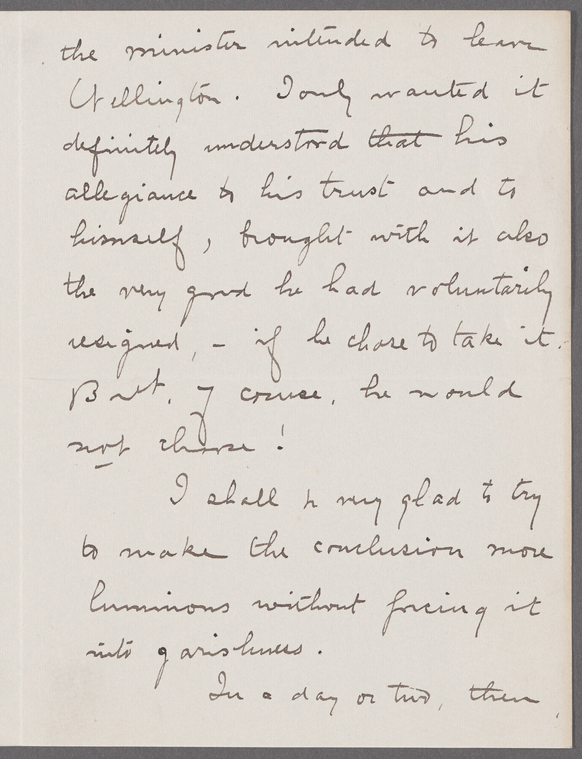 the minister intended to leave
Wellington. I only wanted it
definitely understood that his
allegiance to his trust and to
himself, brought with it also
the very good he had voluntarily
resigned, - if he chose to take it.
But, of course, he would
not choose!
I shall be very glad to try
to make the conclusion more
luminous without forcing it
into garishness.
In a day or two, then,